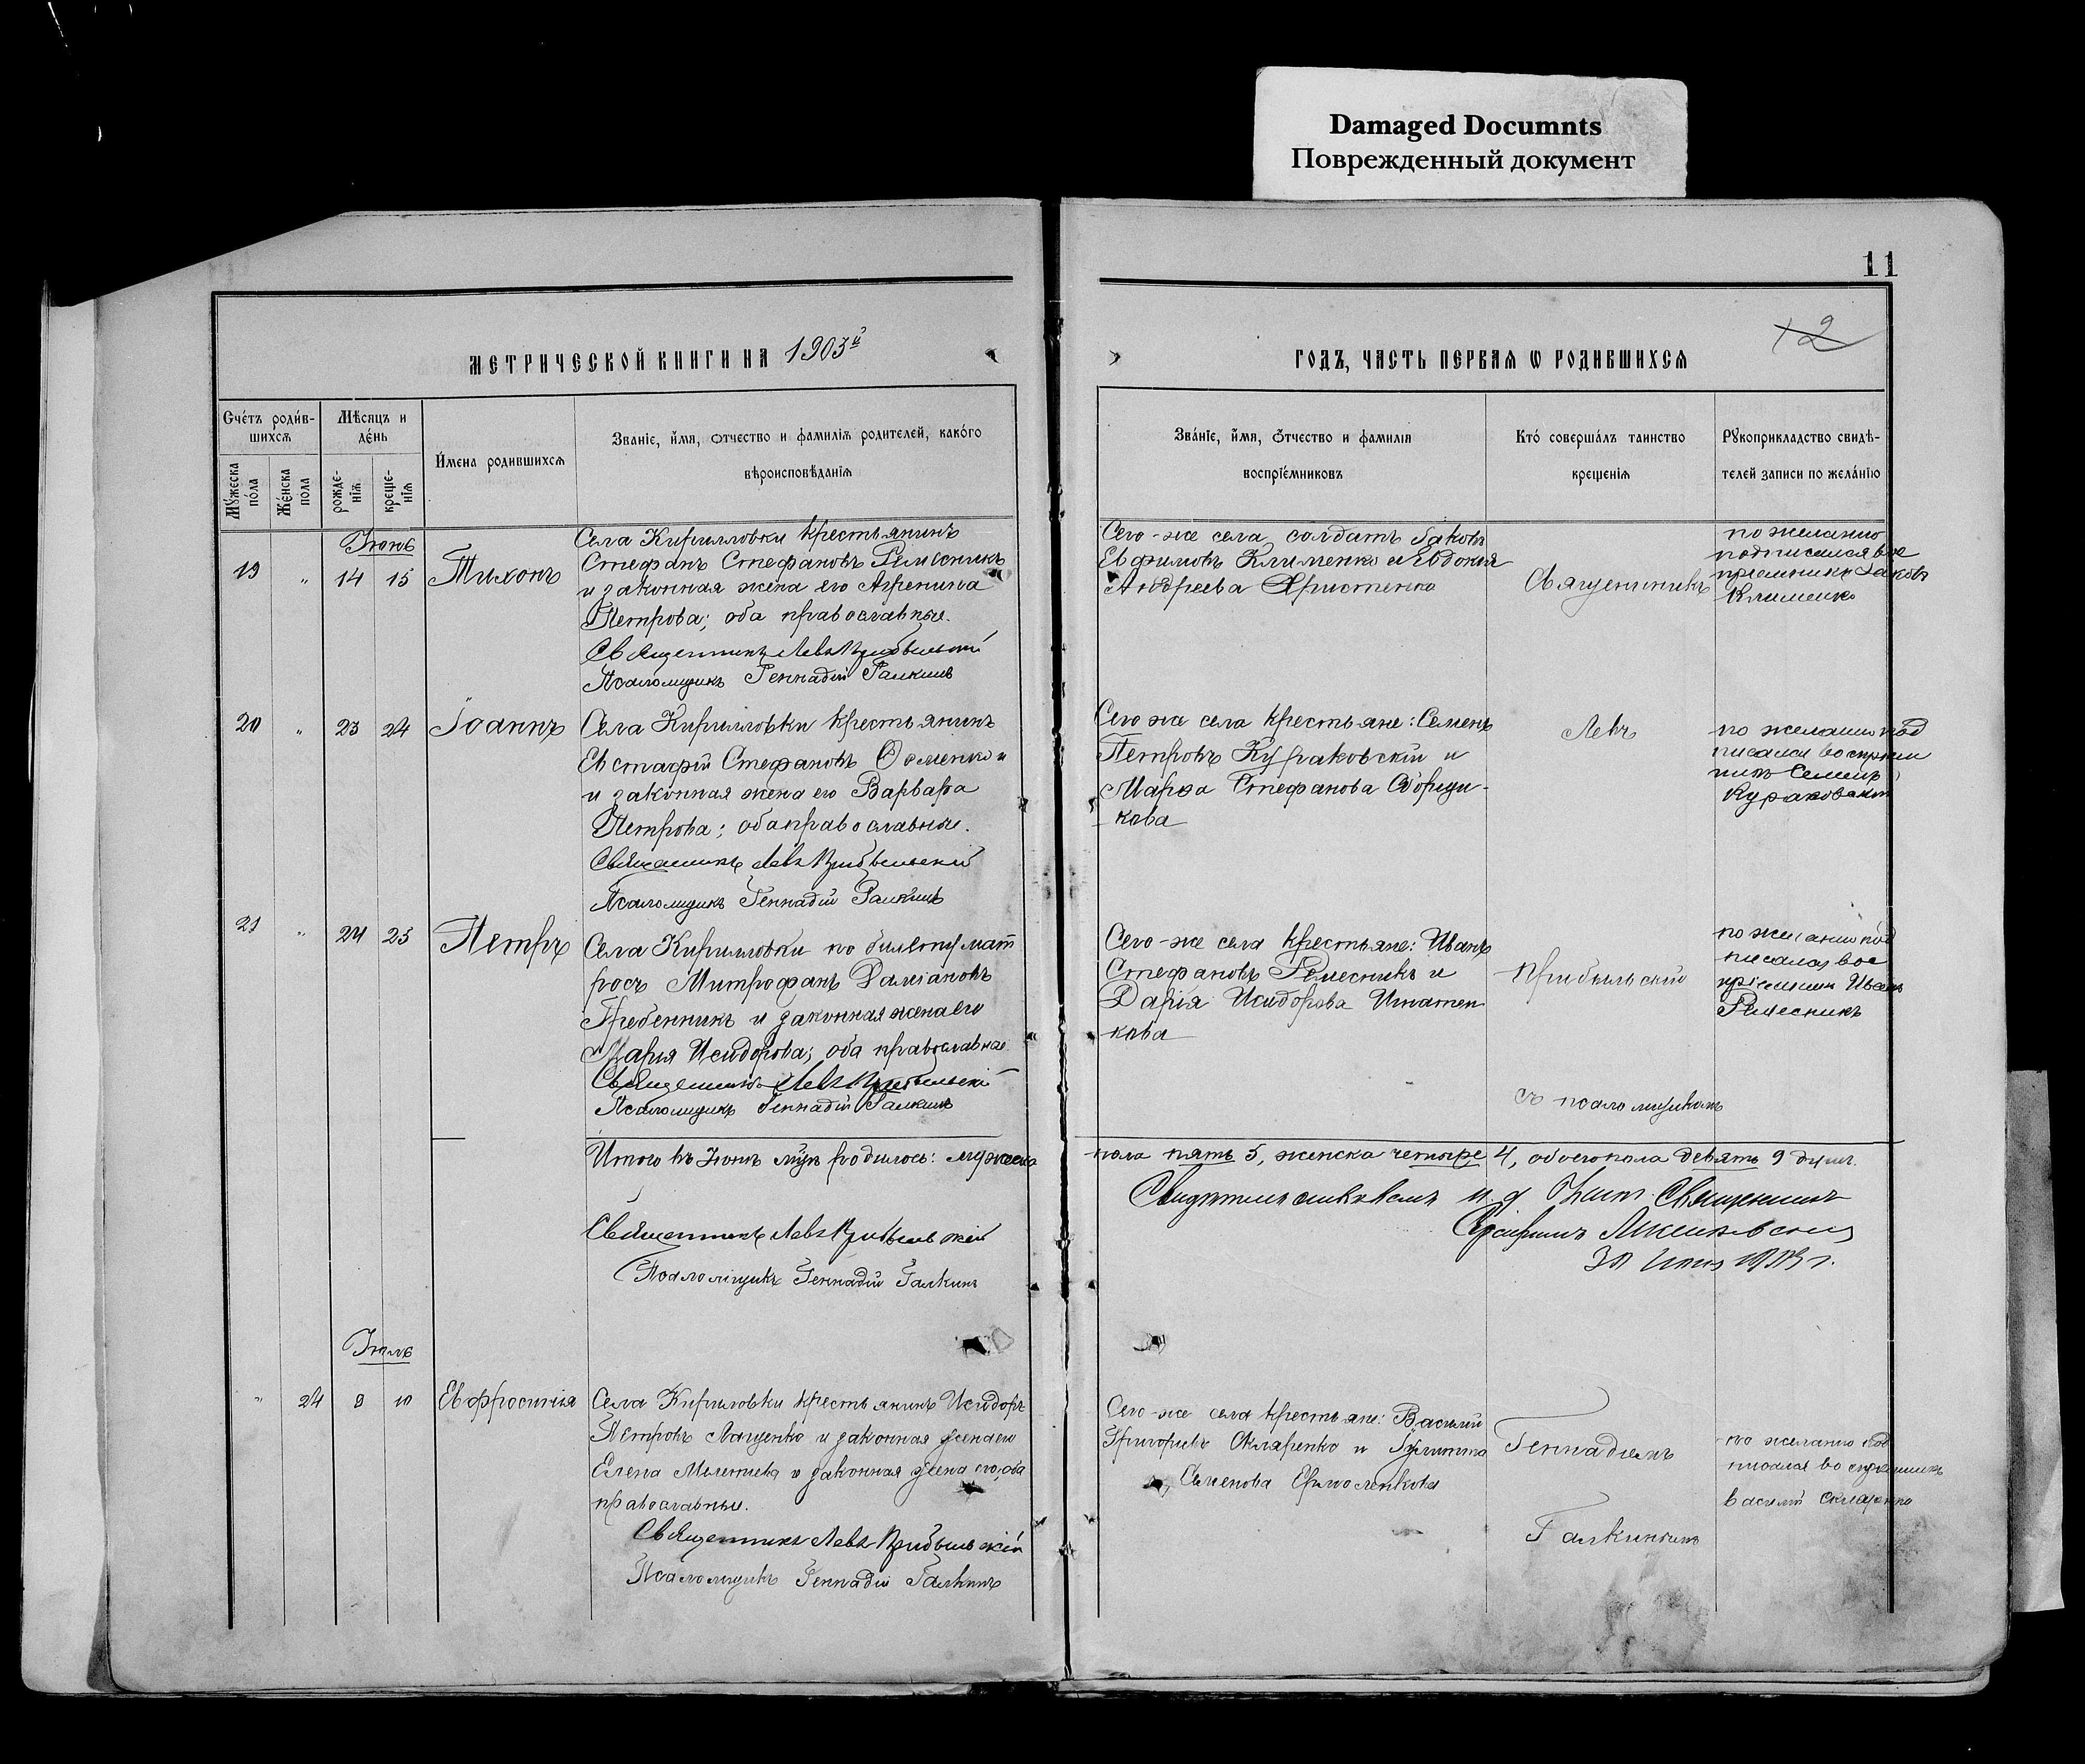 Damaged Documnts
Поврежденный документ
11
12
МЕТРИЧЕСКОЙ КНИГИ НА 1903й
ГОДЪ, ЧАСТЬ ПЕРВАЯ Ѡ РОДИВШИХСѦ
Счéтъ роди́в-
шихсѧ
Мѣсяцъ и
дéнь
Мꙋ́жеска
по́ла
Жéнска
пола
рожде-
нїѧ
креще-
нїѧ
И́мена родившихсѧ
Званїе, и́мя, ѻтчество и фамилїѧ родителей, како́го
вѣроисповѣданїѧ
Зва́нїе, и́мя, ѻтчество и фамилїя
воспрїе́мниковъ
Кто́ соверша́лъ таинство
крещенїѧ
Рꙋкоприкладство свидѣ-
телей записи по жела́нїю
Іюнь
19 " 14 15 Тихонъ
Села Кирилловки крестьянинъ
Стефанъ Стефановъ Ремесникъ
и законная жена его
Петрова; оба православные.
Священникъ Левъ Прибыльскій
Псаломщикъ Геннадій Галкинъ
Сего-же села солдатъ Яковъ
Евфимовъ Клименко и Евдокия
Андреева Христенко
Священникъ
по желанию
подписался вос
приемникъ Яковъ
Клименко
20 " 23 24 Іоаннъ
Села Кирилловки крестьянинъ
Евстафій Стефановъ
и законная жена его Варвара
Петрова; оба православные.
Священникъ Левъ Прибыльскій
Псаломщикъ Геннадій Галкинъ
Сего же села крестьяне: Семенъ
Петровъ Кураковскій и
Марфа Стефанова
кова
Левъ
по желанию под
писался восприем
никъ Семенъ
Кураковский
21 " 24 25 Петръ
Села Кирилловки по билету мат
росъ Митрофанъ Даміановъ
Гребенникъ и законная жена его
Марія Исидорова; оба православные.
Священникъ Левъ Прибыльскій
Псаломщикъ Геннадій Галкинъ
Сего-же села крестьяне: Иванъ
Стефановъ Ремесникъ и
Дарія Исидорова Игнатен
кова
Прибыльскій
по желанию под
писался вос
пріемник Иванъ
Ремесникъ
съ псаломщикомъ
Итого въ Іюнѣ мцѣ родилось: мужеска
пола пять 5, женска четыре 4, обоего пола девять 9 душ.
Священникъ Левъ Прибыльскій
Псаломщикъ Геннадій Галкинъ
Свидѣтельствовалъ и. д. Священникъ
30 1903 г.
Іюль
" 24 9 10 Евфросинія
Села Кириловки крестьянинъ Исидоръ
Петровъ Лащенко и законная жена его
Елена и законная жена его, оба
православные.
Священникъ Левъ Прибыльскій
Псаломщикъ Геннадій Галкинъ
Сего-же села крестьяне: Василий
Григорьевъ Скляренко и
Семенова Ермоленкова
Геннадіемъ
Галкинымъ
по желанию под
писался восприемникъ
василий скляренко